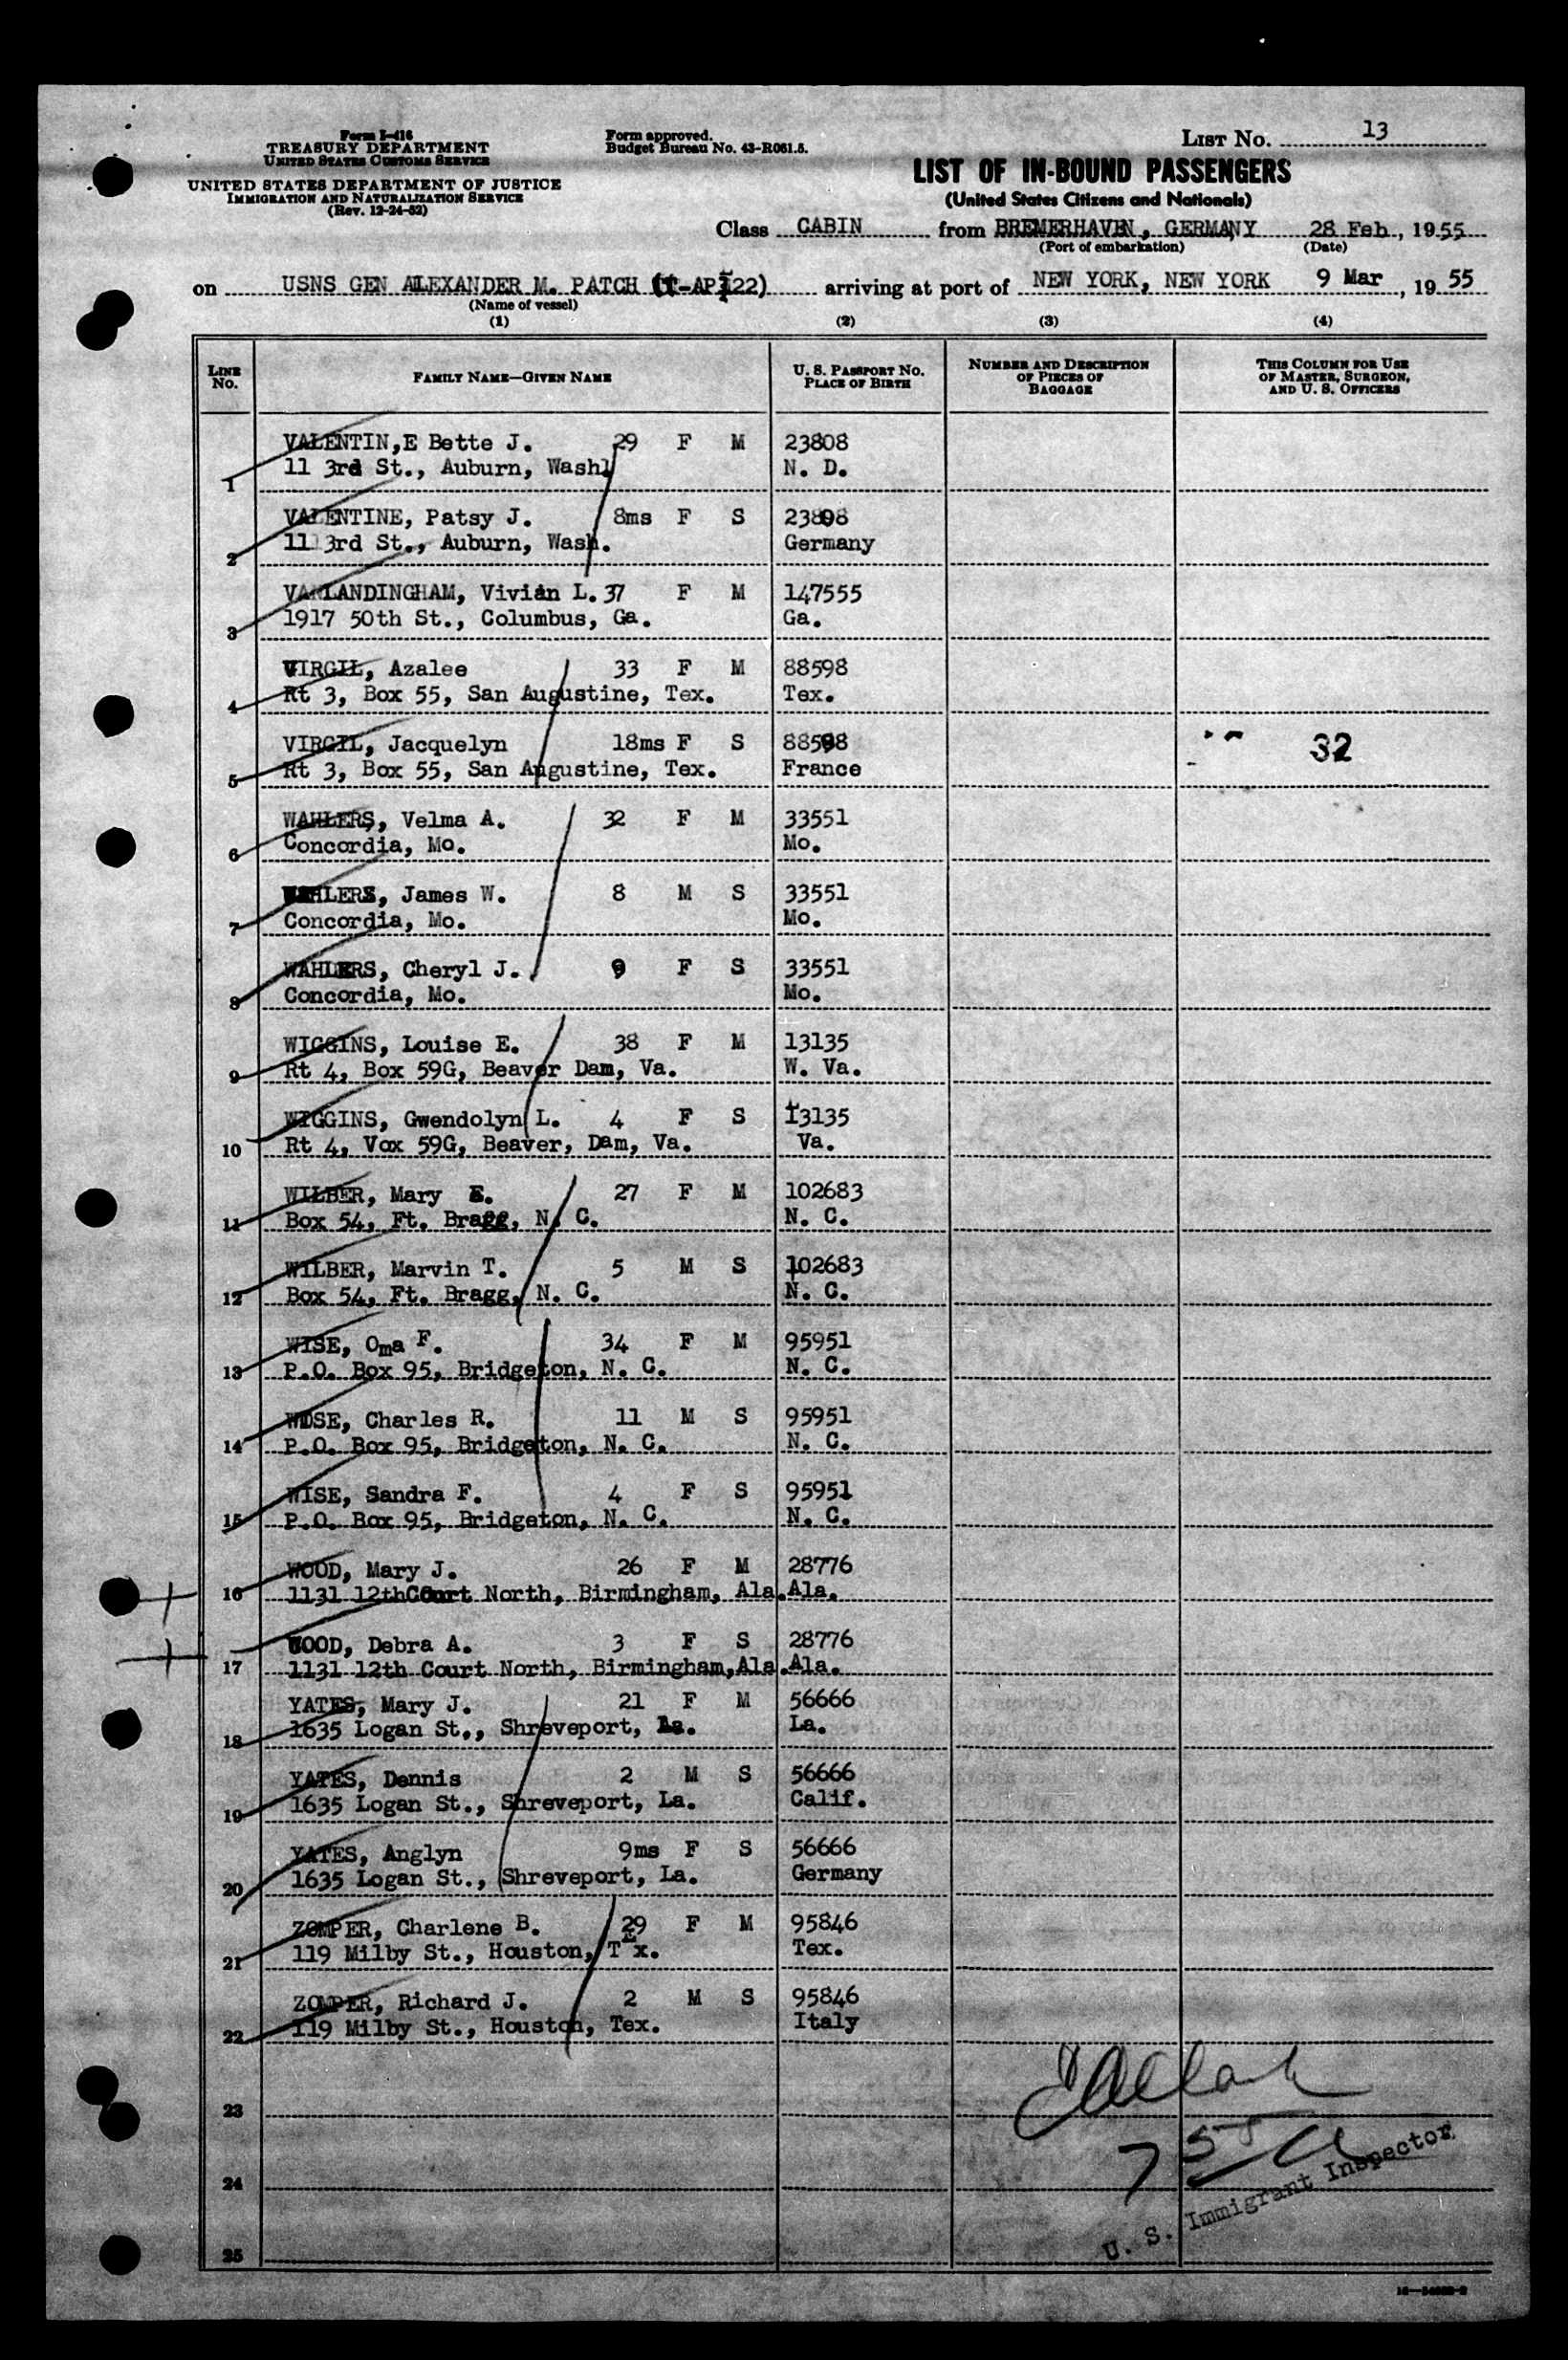 Form I-416
TREASURY DEPARTMENT
UNITED STATES CUSTOMS SERVICE
UNITED STATES DEPARTMENT OF JUSTICE
IMMIGRATION AND NATURALIZATION SERVICE
(Rev. 12-24-52)
Form approved.
Budget Bureau No. 43-R061.5.
LIST No. 13
LIST OF IN-BOUND PASSENGERS
(United States Citizens and Nationals)
Class CABIN from BREMERHAVEN, GERMANY 28 Feb, 1955
(Port of embarkation) (Date)
on USNS GEN ALEXANDER M. PATCH (T-AP122) arriving at port of NEW YORK, NEW YORK 9 Mar, 1955
(Name of vessel)
(1) (2) (3) (4)
LINE No. FAMILY NAME—GIVEN NAME U. S. PASSPORT NO. PLACE OF BIRTH NUMBER AND DESCRIPTION OF PIECES OF BAGGAGE THIS COLUMN FOR USE OF MASTER, SURGEON, AND U. S. OFFICERS
VALENTIN,E Bette J. 29 F M 23808
1 11 3rd St., Auburn, Wash. N. D.
VALENTINE, Patsy J. 8ms F S 23808
2 11 3rd St., Auburn, Wash. Germany
VANLANDINGHAM, Vivian L. 37 F M 147555
3 1917 50th St., Columbus, Ga. Ga.
VIRGIL, Azalee 33 F M 88598
4 Rt 3, Box 55, San Augustine, Tex. Tex.
VIRGIL, Jacquelyn 18ms F S 88598 32
5 Rt 3, Box 55, San Augustine, Tex. France
WAHLERS, Velma A. 32 F M 33551
6 Concordia, Mo. Mo.
WAHLERS, James W. 8 M S 33551
7 Concordia, Mo. Mo.
WAHLERS, Cheryl J. 9 F S 33551
8 Concordia, Mo. Mo.
WIGGINS, Louise E. 38 F M 13135
9 Rt 4, Box 59G, Beaver Dam, Va. W. Va.
WIGGINS, Gwendolyn L. 4 F S 13135
10 Rt 4, Vox 59G, Beaver, Dam, Va. Va.
WILBER, Mary E. 27 F M 102683
11 Box 54, Ft. Bragg, N. C. N. C.
WILBER, Marvin T. 5 M S 102683
12 Box 54, Ft. Bragg, N. C. N. C.
WISE, Oma F. 34 F M 95951
13 P.O. Box 95, Bridgeton, N. C. N. C.
WISE, Charles R. 11 M S 95951
14 P.O. Box 95, Bridgeton, N. C. N. C.
WISE, Sandra F. 4 F S 95951
15 P.O. Box 95, Bridgeton, N. C. N. C.
WOOD, Mary J. 26 F M 28776
16 1131 12thCourt North, Birmingham, Ala. Ala.
WOOD, Debra A. 3 F S 28776
17 1131 12th Court North, Birmingham,Ala. Ala.
YATES, Mary J. 21 F M 56666
18 1635 Logan St., Shreveport, La. La.
YATES, Dennis 2 M S 56666
19 1635 Logan St., Shreveport, La. Calif.
YATES, Anglyn 9ms F S 56666
20 1635 Logan St., Shreveport, La. Germany
ZOMPER, Charlene B. 29 F M 95846
21 119 Milby St., Houston, Tex. Tex.
ZOMPER, Richard J. 2 M S 95846
22 119 Milby St., Houston, Tex. Italy
23
24
25
U. S. Immigrant Inspector